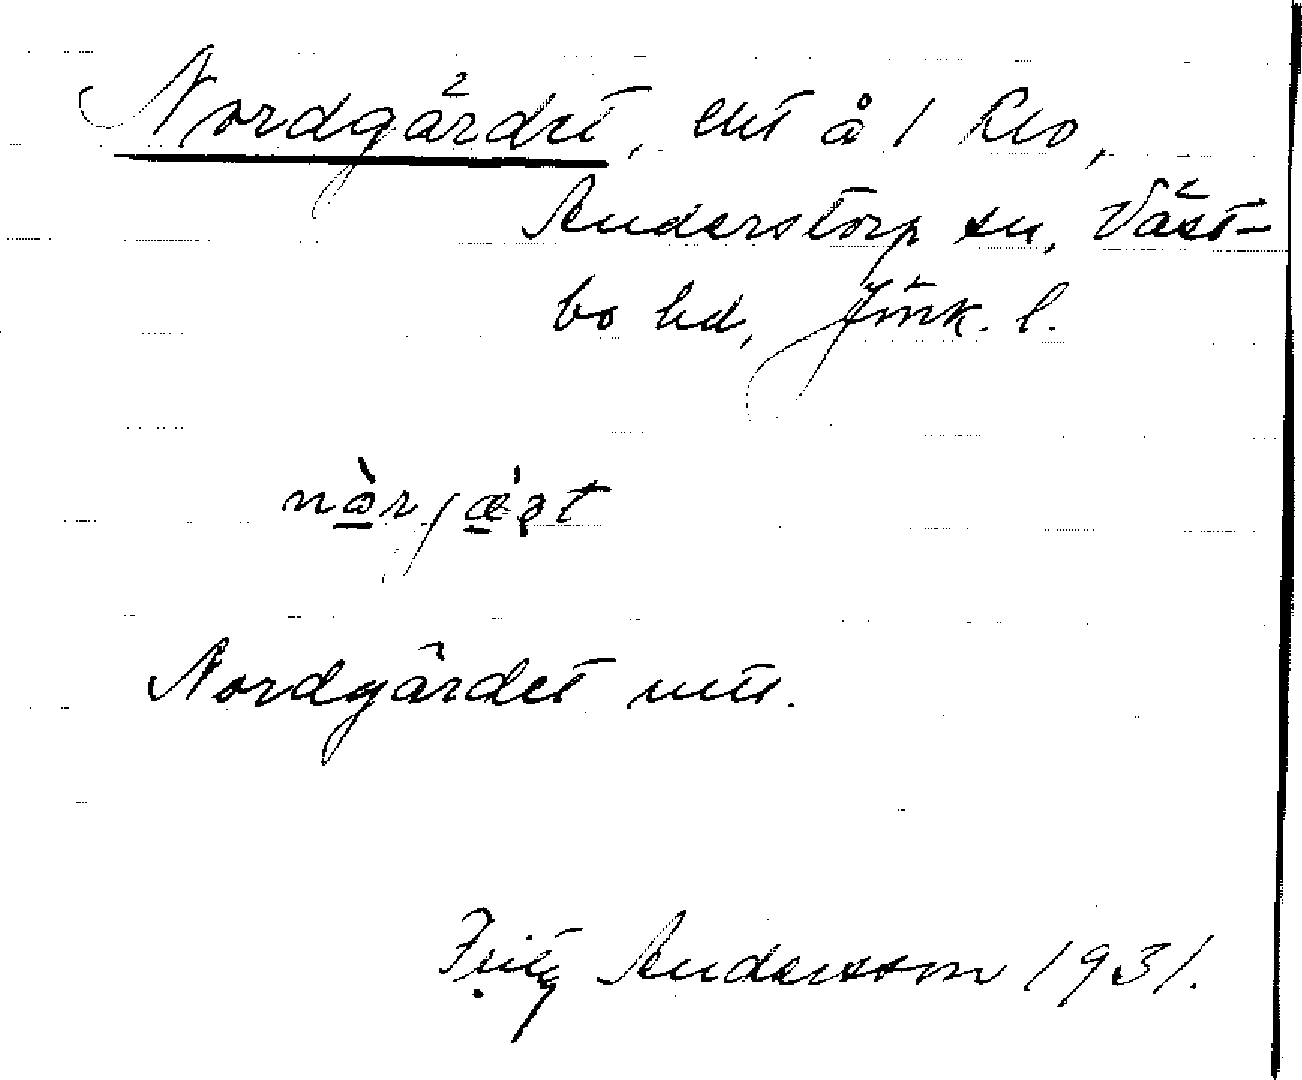 Nordgärdet, ent å 1 Klo,
Anderstorp sn, Väst-
bo hd, Jönk. l.
Nordgärdet mts.
Fritz Andersson 1931.